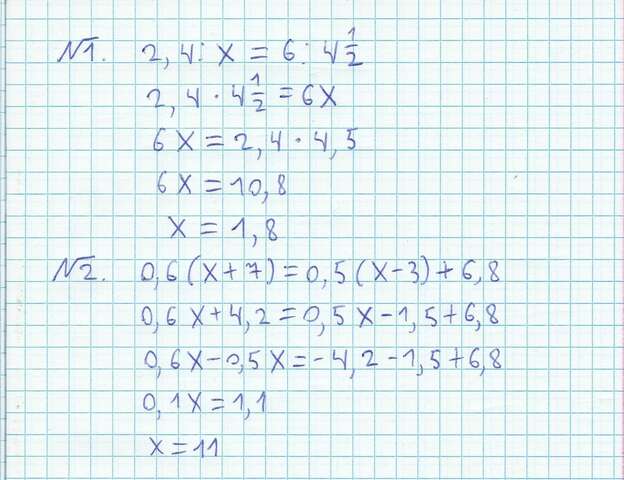 №1. 2,4 : x = 6 : 4 1/2
2,4 · 4 1/2 = 6x
6x = 2,4 · 4,5
6x = 10,8
x = 1,8
№2. 0,6(x+7)=0,5(x-3)+6,8
0,6x+4,2=0,5x-1,5+6,8
0,6x-0,5x=-4,2-1,5+6,8
0,1x=1,1
x=11